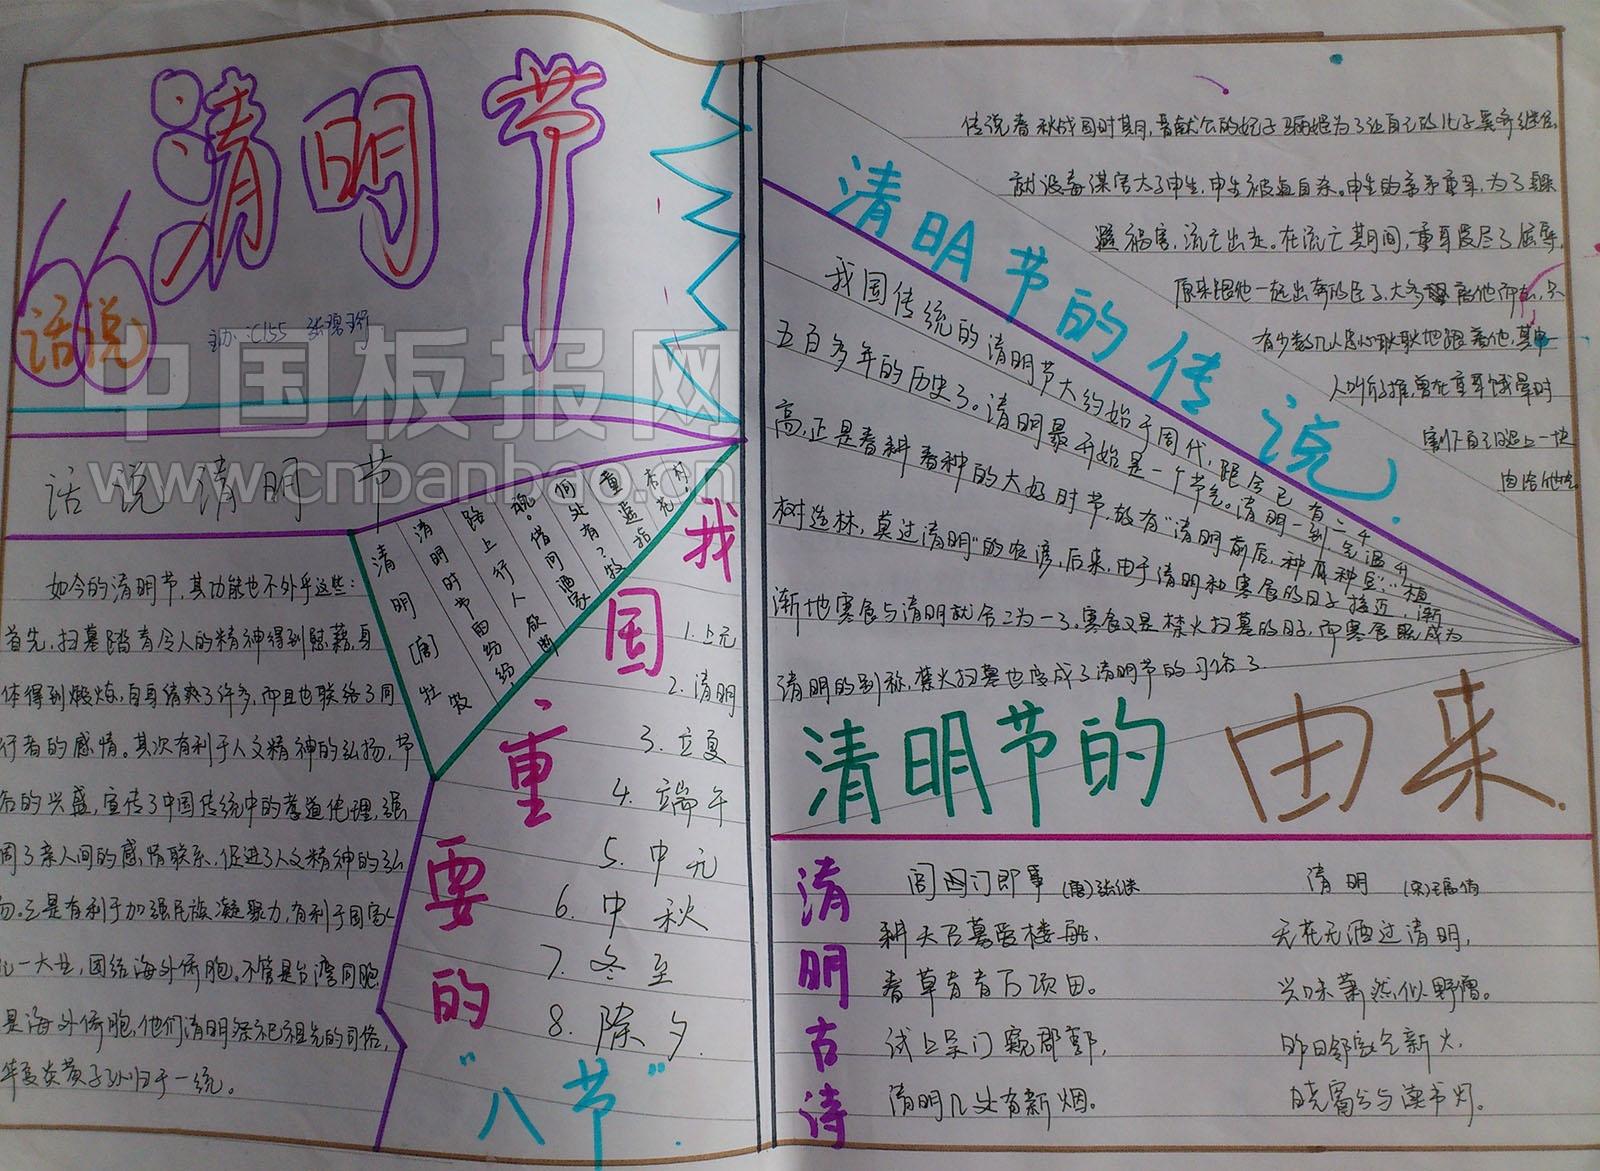 清明节
话说
主办:C155
中国板报网
www.cnpanbao.com
话说清明节
如今的清明节,其功能也不外乎这些:
首先,扫墓踏青令人的精神得到慰藉,身
体得到煅炼,自身清爽了许多,而且也联络了同
行者的感情。其次有利于人文精神的弘扬,节
的兴盛,宣传了中国传统中的孝道伦理,强
调了亲人间的感情联系,促进了人文精神的弘
三是有利于加强民族凝聚力,有利于国家
一大业,团结海外侨胞。不管是台湾同胞
是海外侨胞,他们清明祭祀祖先的习俗,
炎黄子孙归于一统。
清明[唐]杜牧
清明时节雨纷纷,
路上行人欲断
魂。借问酒家
何处有?牧
童遥指
杏花
村。
我国重要的
“八节”.
1.上元
2.清明
3.立夏
4.端午
5.中元
6.中秋
7.冬至
8.除夕.
清明节的传说
传说春秋战国时期,晋献公的妃子骊姬为了让自己的儿子奚齐继位,
就设毒谋害太子申生,申生被逼自杀。申生的弟弟重耳,为了躲
避祸害,流亡出走。在流亡期间,重耳受尽了屈辱,
原来跟他一起出奔的臣子,大多
有少数几人忠心耿耿地跟着他,其中一
人叫介子推,曾在重耳饿晕时
割下自己腿上一块
肉给他吃
我国传统的清明节大约始于周代,距今已有二千
五百多年的历史了。清明最开始是一个节气。清明一到,气温升
高,正是春耕春种的大好时节,故有“清明前后,种瓜种豆”“植
树造林,莫过清明”的农谚,后来,由于清明和寒食的日子接近,渐
渐地寒食与清明就合二为一了。寒食又是禁火扫墓的日子,而寒食既成为
清明的别称,禁火扫墓也变成了清明节的习俗了.
清明节的由来.
清明古诗
阊门即事 (唐)张继
耕夫召募爱楼船,
春草青青万项田。
试上吴门窥郡郭,
清明几处有新烟。
清明 (宋)王禹偁
无花无酒过清明,
兴味萧然似野僧。
昨日邻家乞新火,
晓窗分与读书灯。